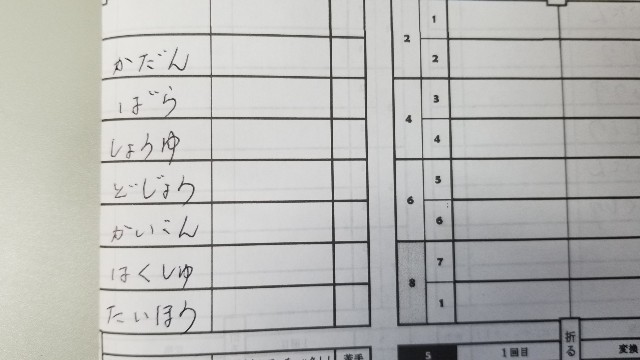 かだん
ばら
しょうゆ
どじょう
かいこん
はくしゅ
たいほう
2
1
2
4
3
4
6
5
6
8
7
1
折る
5
1回目
変換